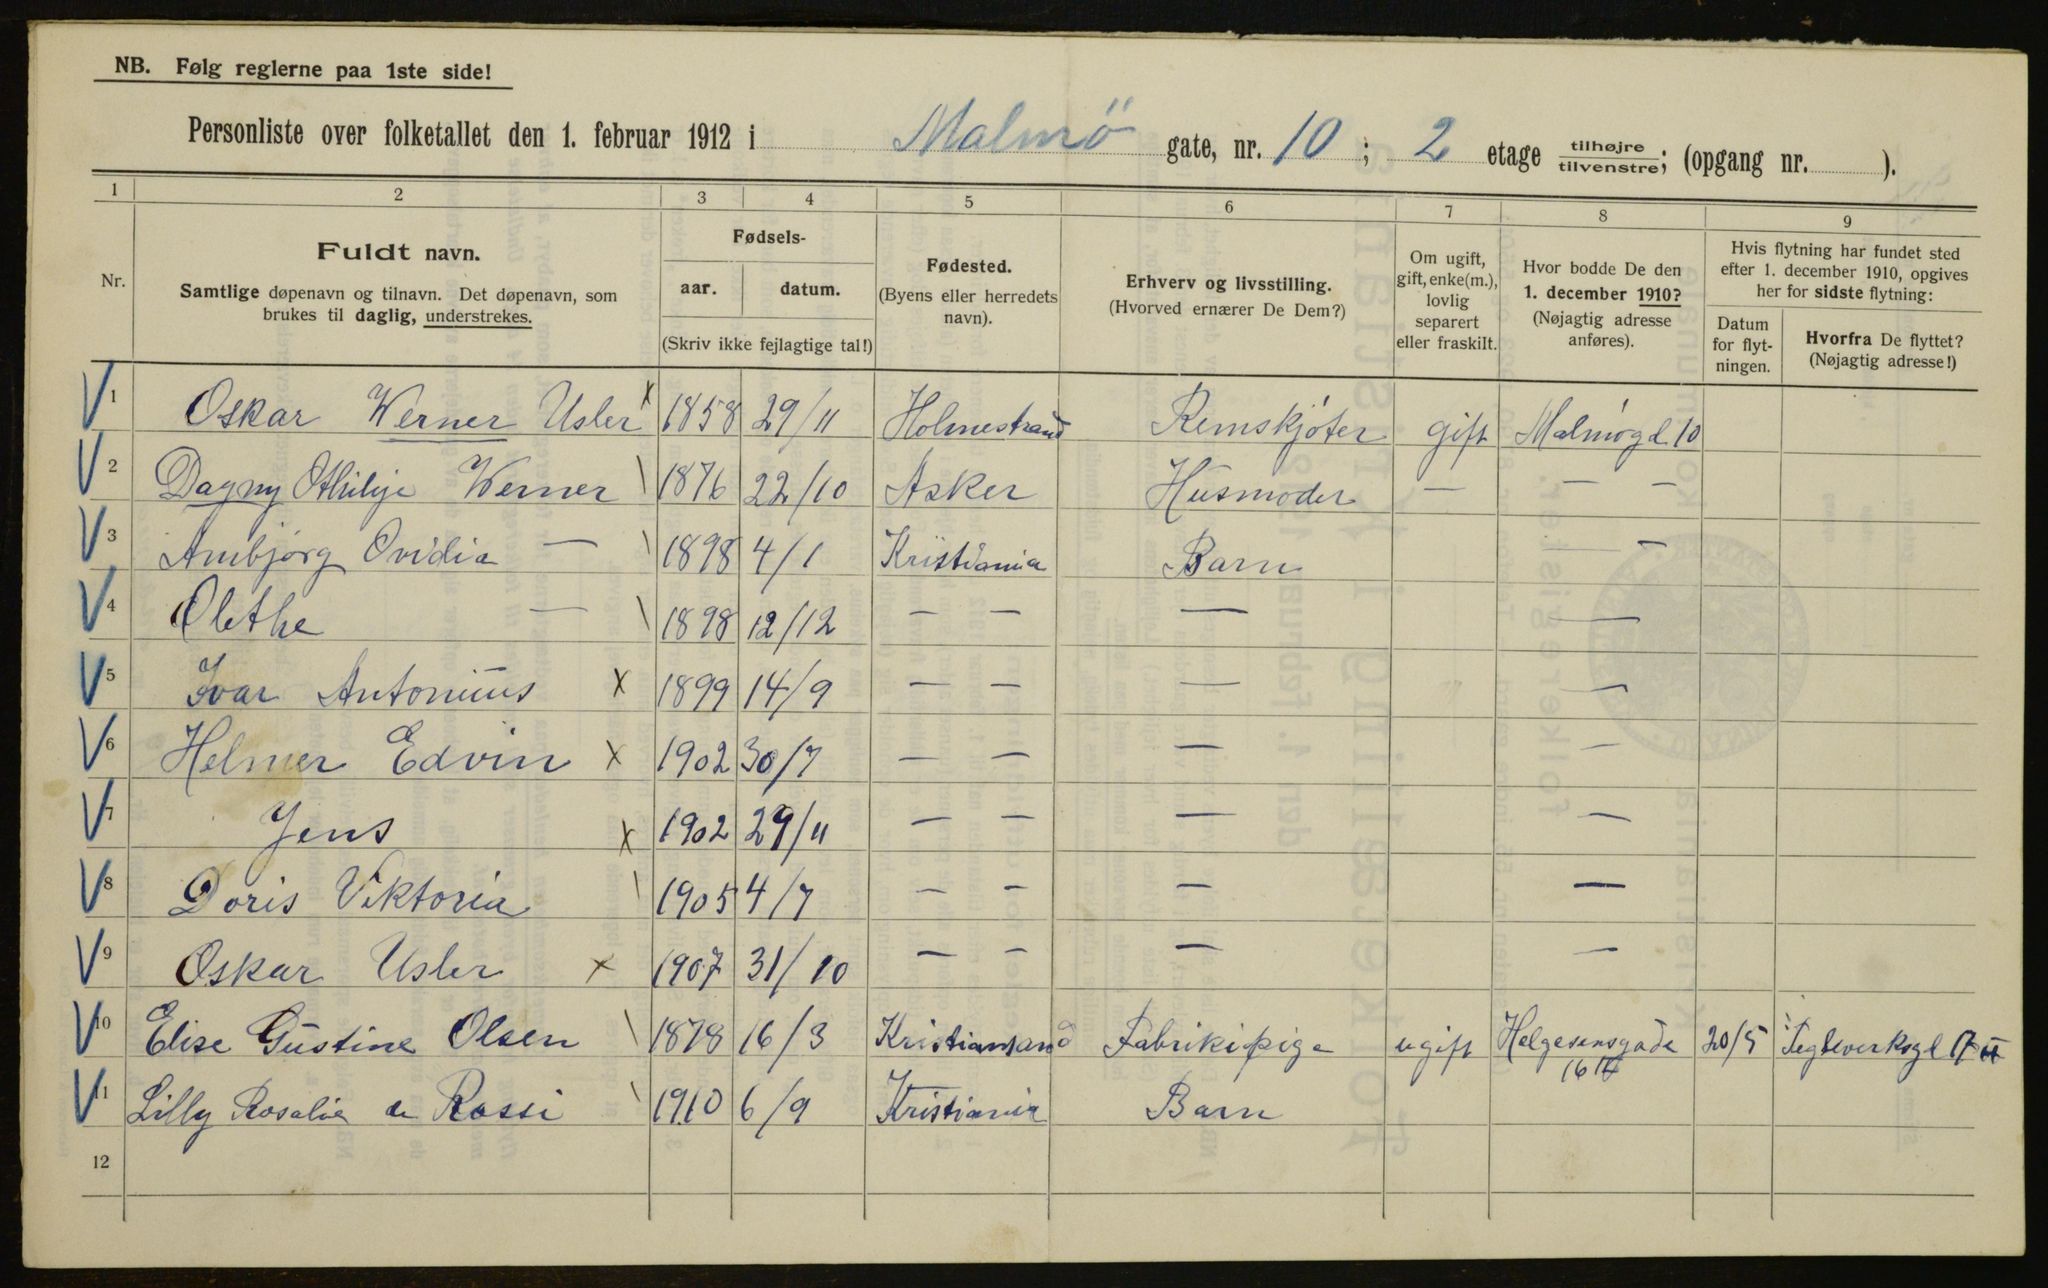 NB. Følg reglerne paa 1ste side!
Personliste over folketallet den 1. februar 1912 i Malmö gate, nr. 10; 2 etage tilhøjre tilvenstre; (opgang nr. ).
1 2 3 4 5 6 7 8 9
Nr.
Fuldt navn.
Samtlige døpenavn og tilnavn. Det døpenavn, som
brukes til daglig, understrekes.
Fødsels-
aar. datum.
(Skriv ikke fejlagtige tal!)
Fødested.
(Byens eller herredets
navn).
Erhverv og livsstilling.
(Hvorved ernærer De Dem?)
Om ugift,
gift, enke(m.),
lovlig
separert
eller fraskilt.
Hvor bodde De den
1. december 1910?
(Nøjagtig adresse
anføres).
Hvis flytning har fundet sted
efter 1. december 1910, opgives
her for sidste flytning:
Datum
for flyt-
ningen.
Hvorfra De flyttet?
(Nøjagtig adresse!)
V 1 Oskar Werner Usler x 1858 29/11 Holmestrand Remskjøter gift Malmøgd 10
V 2 Dagny Othilije Werner \ 1876 22/10 Asker Husmoder — — —
V 3 Ambjørg Ovidia — \ 1898 4/1 Kristiania Barn —
V 4 Olethe — \ 1898 12/12 — — — —
V 5 Ivar Antonius x 1899 14/9 — — — —
V 6 Helmer Edvin x 1902 30/7 — — — —
V 7 Jens x 1902 29/11 — — — —
V 8 Doris Viktoria \ 1905 4/7 — — — —
V 9 Oskar Usler x 1907 31/10 — — — —
V 10 Elise Gustine Olsen \ 1878 16/3 Kristiansand Fabrikspige ugift Helgesensgade 16 20/5 Teglverksgd 17
V 11 Lilly Rosalie de Rossi \ 1910 6/9 Kristiania Barn
12